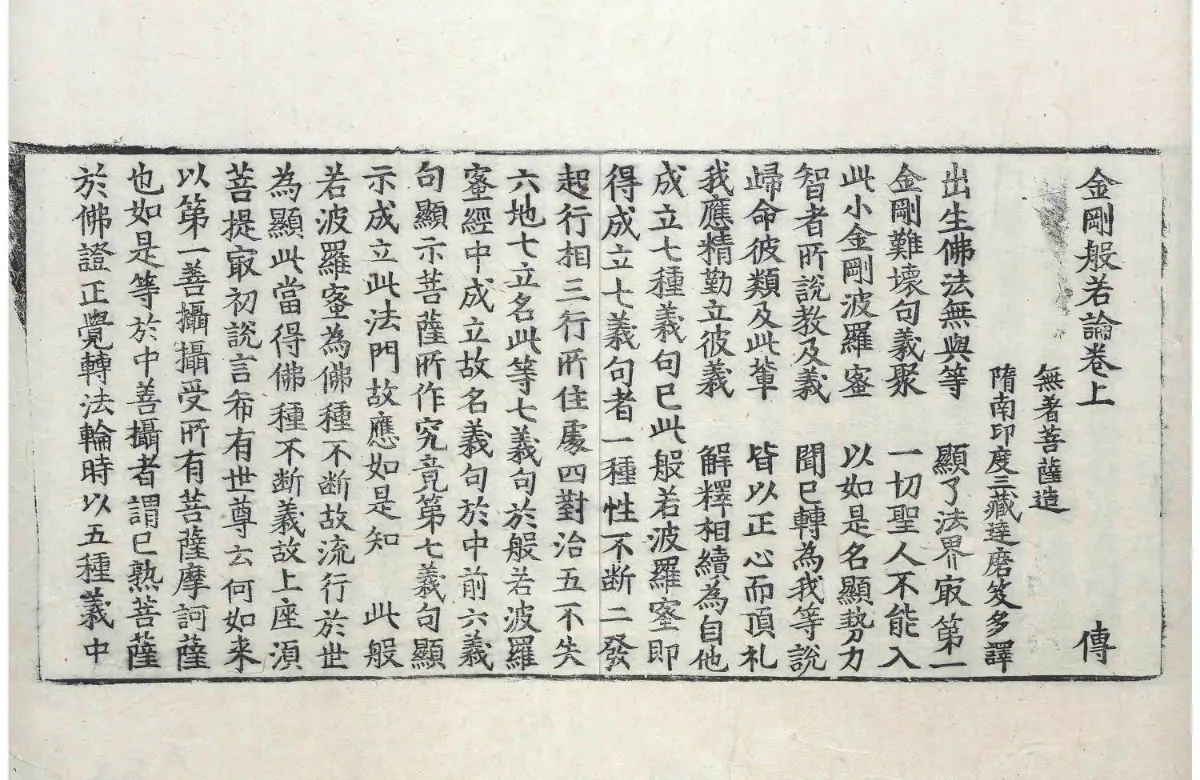 金剛般若論卷上 傳
無著菩薩造
隋南印度三藏達磨笈多譯
出生佛法無與等 顯了法界㝡第一
金剛難壞句義聚 一切聖人不能入
此小金剛波羅蜜 以如是名顯勢力
智者所說教及義 聞已轉為我等說
歸命彼類及此輩 皆以正心而頂礼
我應精勤立彼義 解釋相續為自他
成立七種義句已此般若波羅蜜即
得成立七義句者一種性不斷二發
起行相三行所住處四對治五不失
六地七立名此等七義句於般若波羅
蜜經中成立故名義句於中前六義
句顯示菩薩所作究竟第七義句顯
示成立此法門故應如是知 此般
若波羅蜜為佛種不斷故流行於世
為顯此當得佛種不斷義故上座湏
菩提㝡初說言希有世尊云何如来
以第一善攝攝受所有菩薩摩訶薩
也如是等於中善攝者謂已熟菩薩
於佛證正覺轉法輪時以五種義中